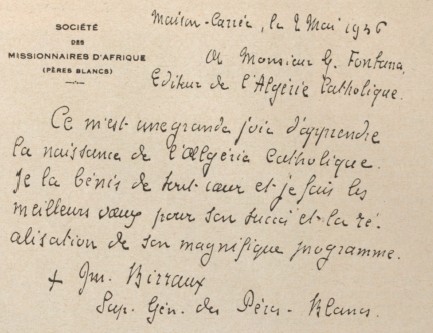 SOCIÉTÉ
DES
MISSIONNAIRES D'AFRIQUE
(PÈRES BLANCS)
Maison-Carrée, le 2 Mai 1936
A Monsieur G. Fontana,
Editeur de l'Algérie Catholique.
Ce m'est une grande joie d'apprendre
la naissance de l'Algérie Catholique.
Je la bénis de tout cœur et je fais les
meilleurs vœux pour son succès et la ré-
alisation de son magnifique programme.
+ Jm. Birraux
Sup. Gén. des Pères-Blancs.